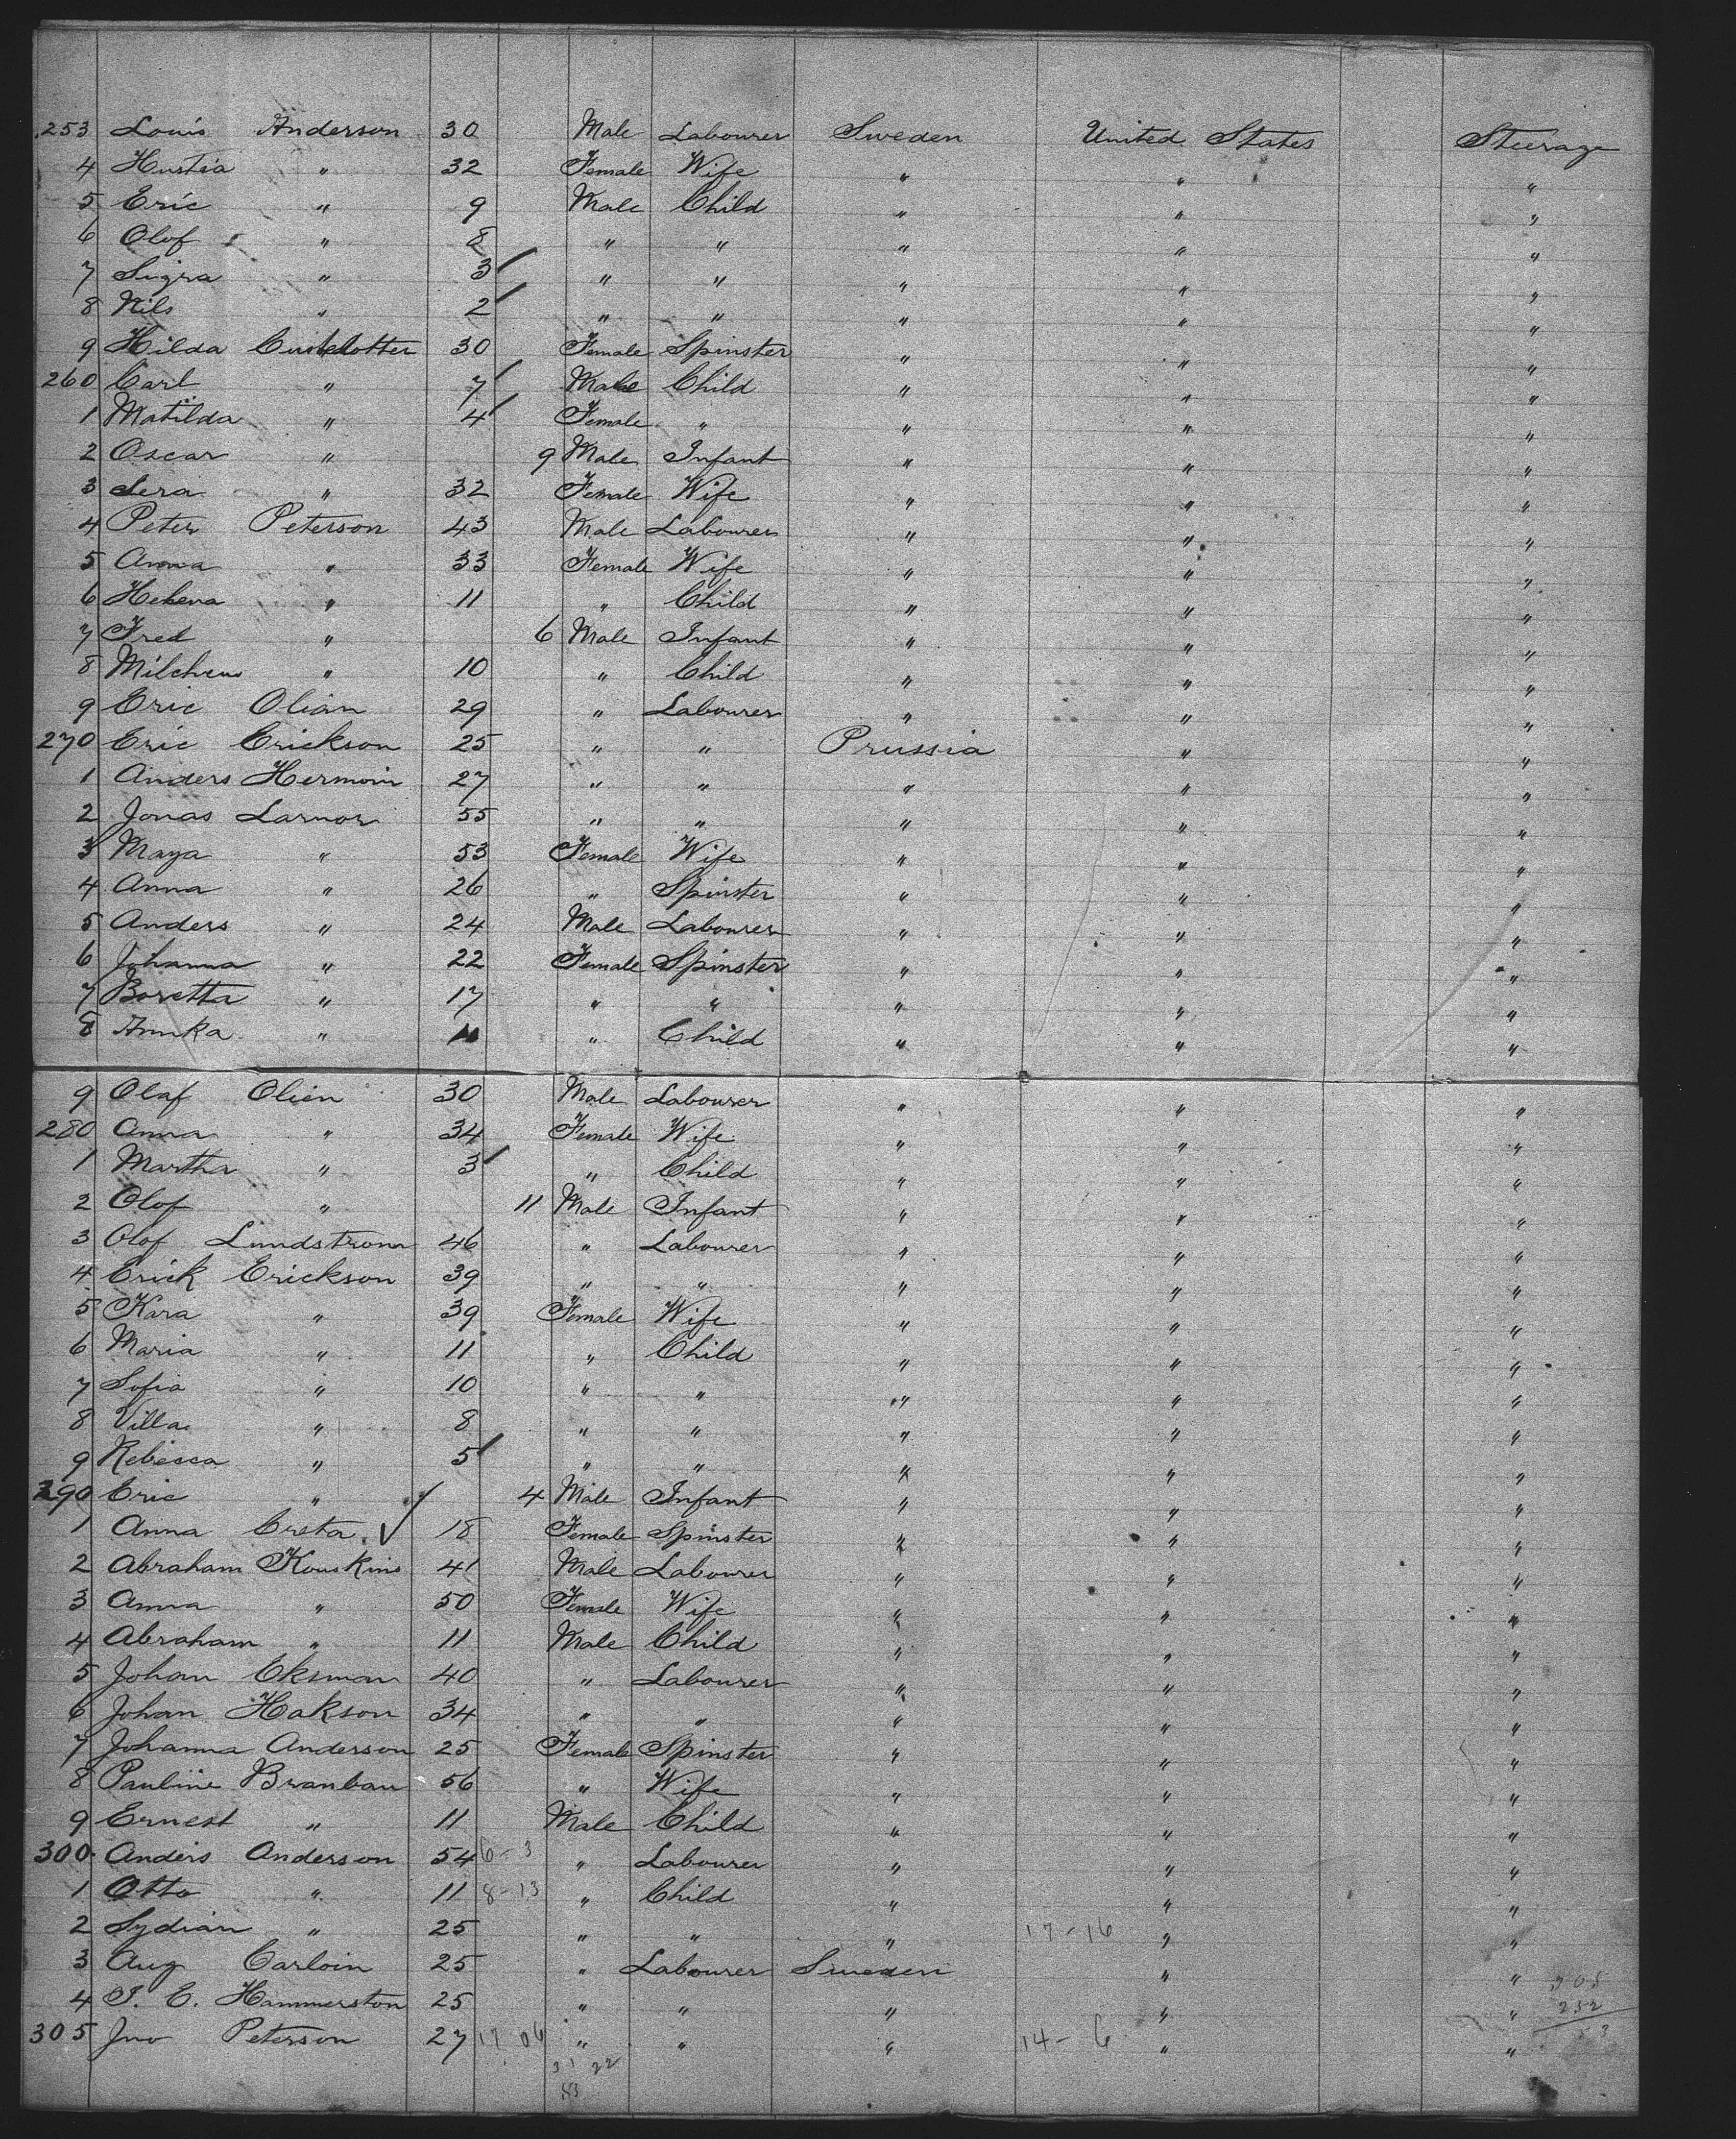 253 Louis Anderson 30 Male Labourer Sweden United States Steerage
4 Hustia " 32 Female Wife " " "
5 Eric " 9 Male Child " " "
6 Olof " 8 " " " " "
7 Sigra " 3 " " " " "
8 Nils " 2 " " " " "
9 Hilda 30 Female Spinster " " "
260 Carl " 7 Male Child " " "
1 Matilda " 4 Female " " " "
2 Oscar " 9 Male Infant " " "
3 Sera " 32 Female Wife " " "
4 Peter Peterson 43 Male Labourer " " "
5 Anna " 33 Female Wife " " "
6 Helena " 11 " Child " " "
7 Fred " 6 Male Infant " " "
8 " 10 " Child " " "
9 Eric Olian 29 " Labourer " " "
270 Eric Erickson 25 " " Prussia " "
1 Anders Hermoin 27 " " " " "
2 Jonas Larnor 55 " " " " "
3 Maya " 53 Female Wife " " "
4 Anna " 26 " Spinster " " "
5 Anders " 24 Male Labourer " " "
6 Johanna " 22 Female Spinster " " "
7 Boretta " 17 " " " " "
8 Annka " 11 " Child " " "
9 Olaf Olien 30 Male Labourer " " "
280 Anna " 34 Female Wife " " "
1 Martha " 3 " Child " " "
2 Olof " 11 Male Infant " " "
3 Olof Lundstrom 46 " Labourer " " "
4 Erick Erickson 39 " " " " "
5 Kara " 39 Female Wife " " "
6 Maria " 11 " Child " " "
7 Sofia " 10 " " " " "
8 Villa " 8 " " " " "
9 Rebecca " 5 " " " " "
290 Eric " 4 Male Infant " " "
1 Anna Creta 18 Female Spinster " " "
2 Abraham Kouskins 41 Male Labourer " " "
3 Anna " 50 Female Wife " " "
4 Abraham " 11 Male Child " " "
5 Johan Eksman 40 " Labourer " " "
6 Johan Hakson 34 " " " " "
7 Johanna Anderson 25 Female Spinster " " "
8 Pauline Branban 56 " Wife " " "
9 Ernest " 11 Male Child " " "
300 Anders Anderson 54 6-3 " Labourer " " "
1 Otto " 11 8-13 " Child " " "
2 Lydian " 25 " " " 17-16 " "
3 Aug Carloin 25 " Labourer Sweden " "
4 J. E. Hammerston 25 " " " " "
305 Jno Peterson 27 " " " 14-6 " "
252